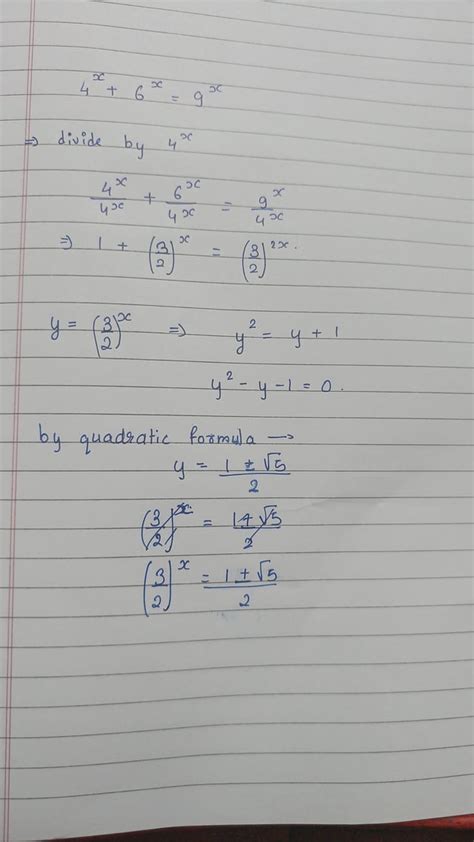 4^x + 6^x = 9^x
⇒ divide by 4^x
4^x/4^x + 6^x/4^x = 9^x/4^x
⇒ 1 + (3/2)^x = (3/2)^2x.
y = (3/2)^x ⇒ y^2 = y + 1
y^2 - y - 1 = 0.
by quadratic formula →
y = (1 ± √5)/2
(3/2)^x = (1 + √5)/2
(3/2)^x = (1 ± √5)/2